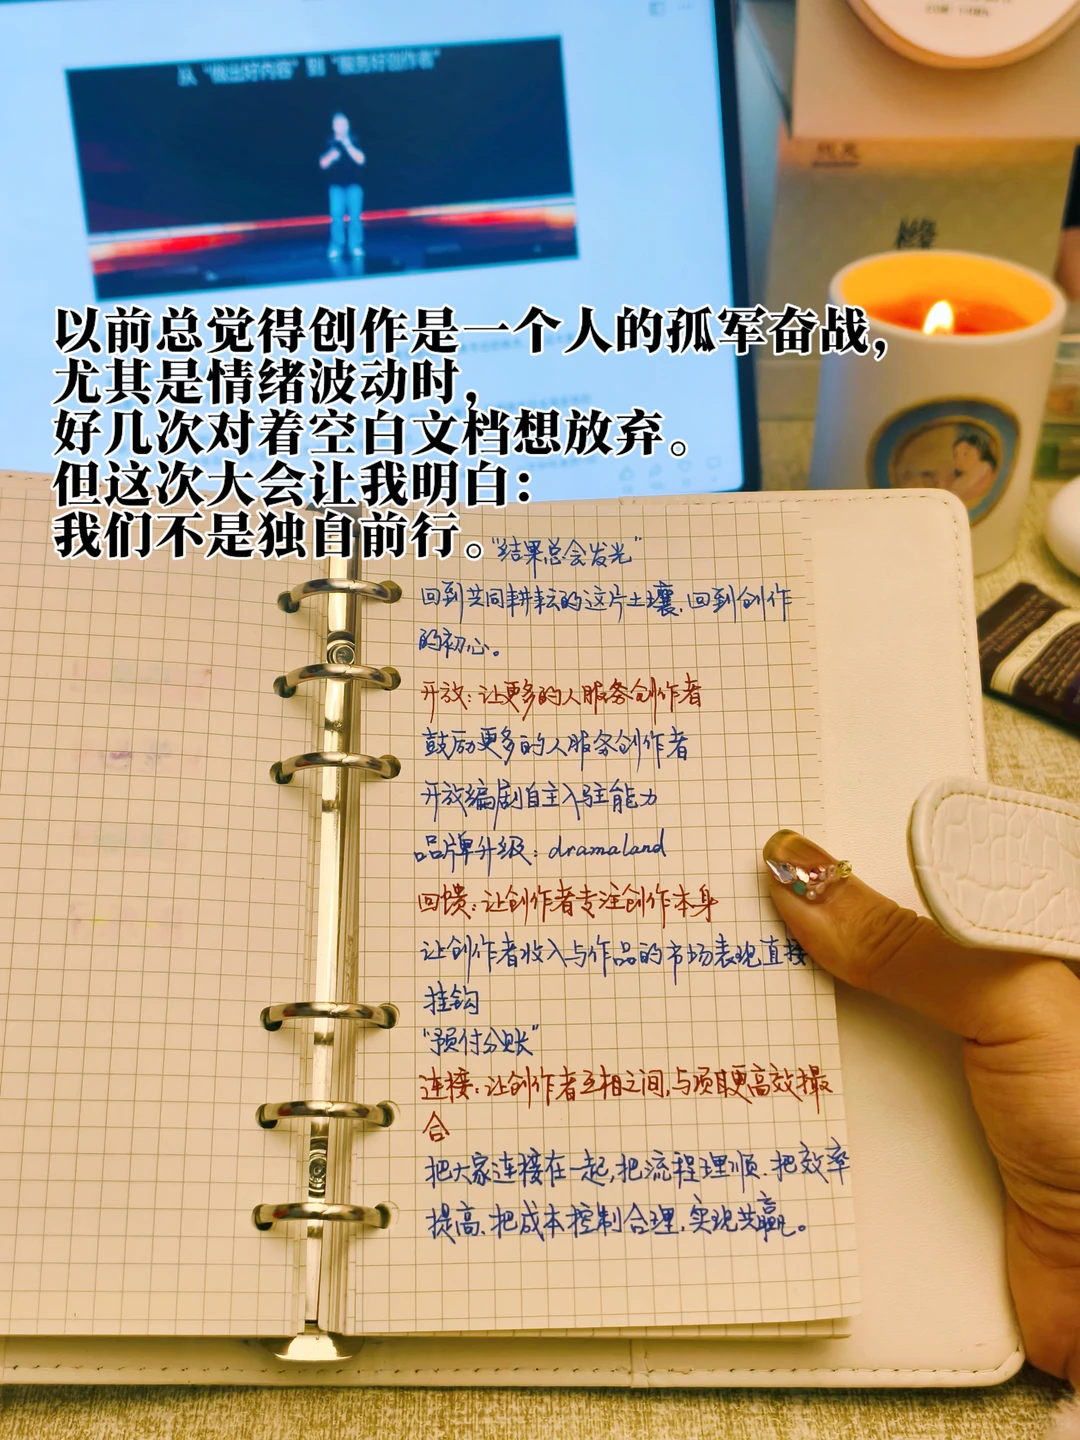 从“做出好内容”到“服务好创作者”
以前总觉得创作是一个人的孤军奋战，
尤其是情绪波动时，
好几次对着空白文档想放弃。
但这次大会让我明白：
我们不是独自前行。
“结果总会发光”
回到共同耕耘的这片土壤，回到创作
的初心。
开放：让更多的人服务创作者
鼓励更多的人服务创作者
开放编剧自主入驻能力
品牌升级：dramaland
回馈：让创作者专注创作本身
让创作者收入与作品的市场表现直接
挂钩
“预付分账”
连接：让创作者互相之间，与项目更高效撮
合
把大家连接在一起，把流程理顺、把效率
提高、把成本控制合理，实现共赢。